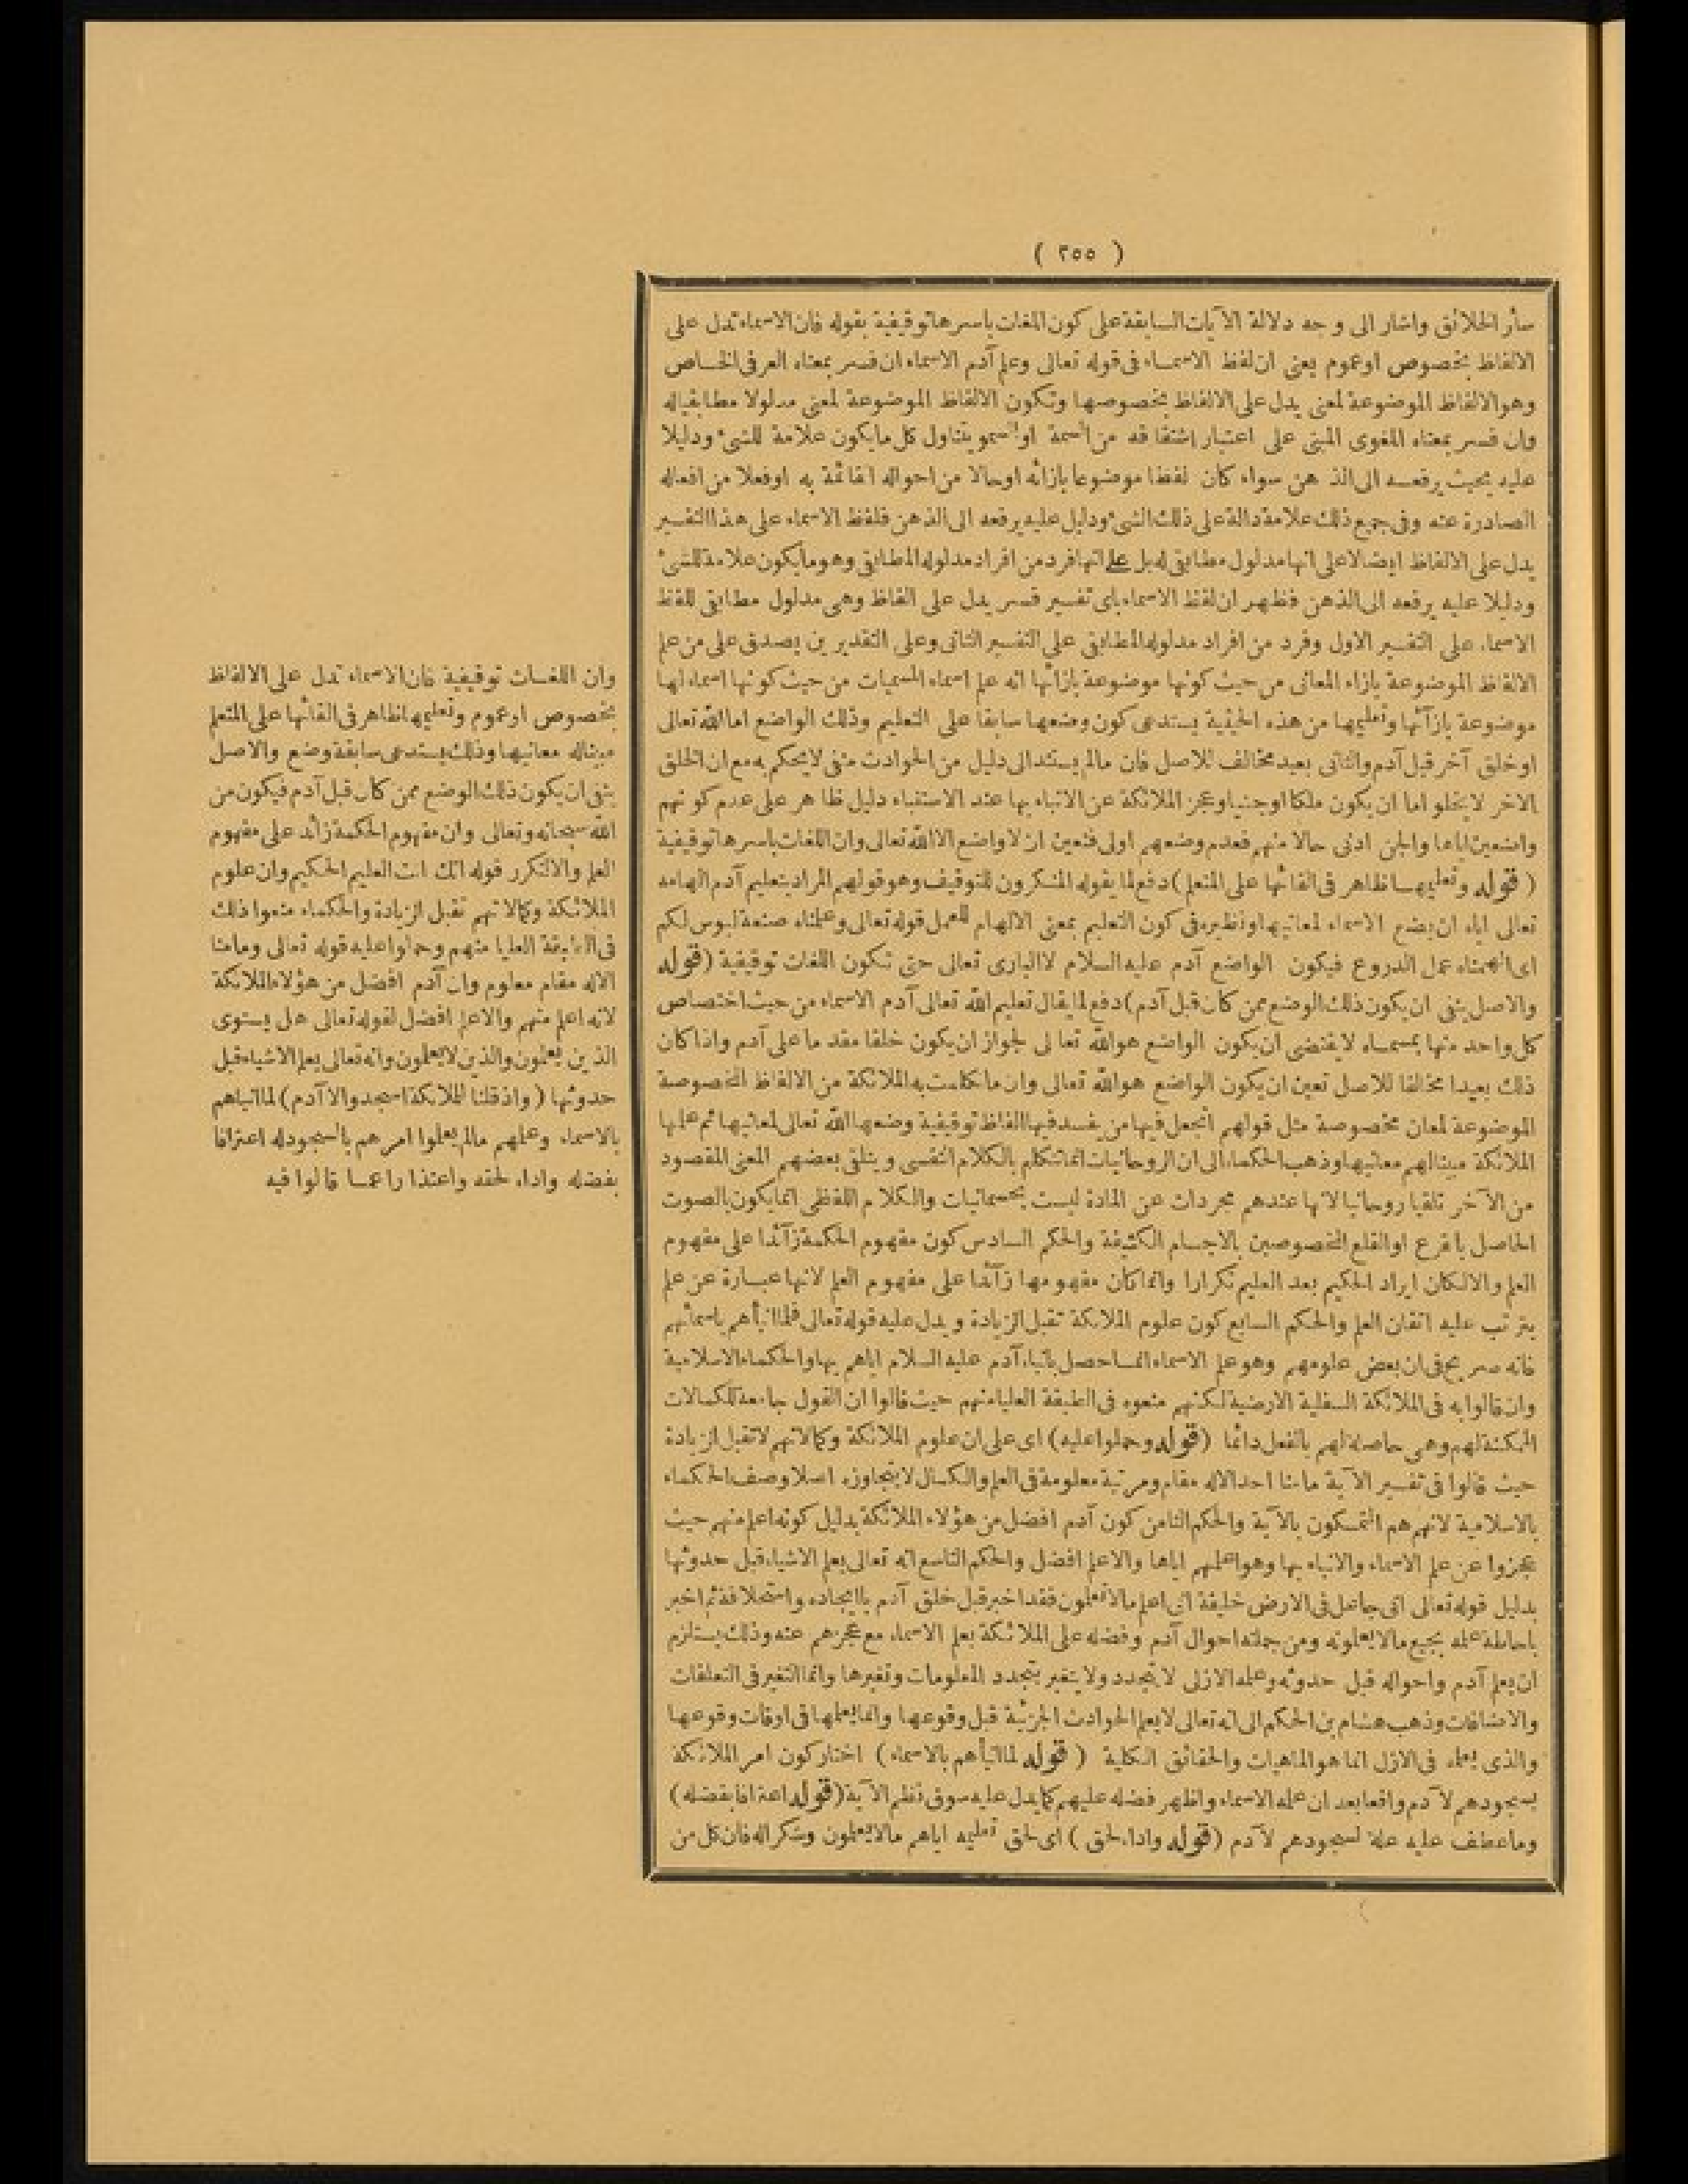 ( ٢٥٥ )
سائر الخلائق واشار الى وجه دلالة الآيات السابقة على كون اللغات باسرها توقيفية بقوله فان الاسماء تدل على
الالفاظ بخصوص اوعموم يعنى ان لفظ الاسماء فى قوله تعالى وعلم آدم الاسماء ان فسر بمعناه العرفى الخاص
وهو الالفاظ الموضوعة لمعنى يدل على الالفاظ بخصوصها وتكون الالفاظ الموضوعة لمعنى مدلولا مطابقياله
وان فسر بمعناه اللغوى المبنى على اعتبار اشتقاقه من السمة او السمو يتناول كل مايكون علامة للشئ ودليلا
عليه بحيث يرفعه الى الذهن سواء كان لفظا موضوعا بازائه اوحالا من احواله القائمة به اوفعلا من افعاله
الصادرة عنه وفى جميع ذلك علامة دالة على ذلك الشئ ودليل عليه يرفعه الى الذهن فلفظ الاسماء على هذا التفسير
يدل على الالفاظ ايضا لاعلى انها مدلول مطابق له بل على انها فرد من افراد مدلوله المطابق وهو مايكون علامة للشئ
ودليلا عليه يرفعه الى الذهن فظهر ان لفظ الاسماء باى تفسير فسر يدل على الفاظ وهى مدلول مطابق للفظ
الاسماء على التفسير الاول وفرد من افراد مدلوله المطابق على التفسير الثانى وعلى التقديرين يصدق على من علم
الالفاظ الموضوعة بازاء المعانى من حيث كونها موضوعة بازائها انه علم اسماء المسميات من حيث كونها اسماء لها
موضوعة بازآئها وتعليمها من هذه الحيثية يستدعى كون وضعها سابقا على التعليم وذلك الواضع اما الله تعالى
اوخلق آخر قبل آدم والثانى بعيد مخالف للاصل فان مالم يستند الى دليل من الحوادث منفى لايحكم به مع ان الخلق
الاخر لايخلو اما ان يكون ملكا اوجنيا وعجز الملائكة عن الانباء بها عند الاستنباء دليل ظاهر على عدم كونهم
واضعين اياها والجن ادنى حالا منهم فعدم وضعهم اولى فتعين ان لاواضع الا الله تعالى وان اللغات باسرها توقيفية
( قوله وتعليمها ظاهر فى القائها على المتعلم ) دفع لما يقوله المنكرون للتوقيف وهو قولهم المراد بتعليم آدم الهامه
تعالى اياه ان يضع الاسماء لمعانيها ونظيره فى كون التعليم بمعنى الالهام للعمل قوله تعالى وعلمناه صنعة لبوس لكم
اى الهمناه عمل الدروع فيكون الواضع آدم عليه السلام لاالبارى تعالى حتى تكون اللغات توقيفية ( قوله
والاصل ينفى ان يكون ذلك الوضع ممن كان قبل آدم ) دفع لما يقال تعليم الله تعالى آدم الاسماء من حيث اختصاص
كل واحد منها بمسماه لايقتضى ان يكون الواضع هو الله تعالى لجواز ان يكون خلقا مقدما على آدم واذا كان
ذلك بعيدا مخالفا للاصل تعين ان يكون الواضع هو الله تعالى وان ماتكلمت به الملائكة من الالفاظ المخصوصة
الموضوعة لمعان مخصوصة مثل قولهم اتجعل فيها من يفسد فيها الفاظ توقيفية وضعها الله تعالى لمعانيها ثم علمها
الملائكة مبينا لهم معانيها وذهب الحكماء الى ان الروحانيات انما تتكلم بالكلام النفسى ويتلقى بعضهم المعنى المقصود
من الآخر تلقيا روحانيا لانها عندهم مجردات عن المادة ليست بجسمانيات والكلام اللفظى انما يكون بالصوت
الحاصل بالقرع اوالقلع المخصوصين بالاجسام الكثيفة والحكم السادس كون مفهوم الحكمة زآئدا على مفهوم
العلم والالكان ايراد الحكيم بعد العليم تكرارا وانما كان مفهومها زآئدا على مفهوم العلم لانها عبارة عن علم
يترتب عليه اتقان العلم والحكم السابع كون علوم الملائكة تقبل الزيادة ويدل عليه قوله تعالى فلما انبأهم باسمائهم
فانه صريح فى ان بعض علومهم وهو علم الاسماء انما حصل بانباء آدم عليه السلام اياهم بها والحكماء الاسلامية
وان قالوا به فى الملائكة السفلية الارضية لكنهم منعوه فى الطبقة العليا منهم حيث قالوا ان العقول جامعة للكمالات
الممكنة لهم وهى حاصلة لهم بالفعل دائما ( قوله وحملوا عليه ) اى على ان علوم الملائكة وكمالاتهم لاتقبل الزيادة
حيث قالوا فى تفسير الآية مامنا احد الاله مقام ومرتبة معلومة فى العلم والكمال لايتجاوزه اصلا وصف الحكماء
بالاسلامية لانهم هم المتمسكون بالآية والحكم الثامن كون آدم افضل من هؤلاء الملائكة بدليل كونه اعلم منهم حيث
عجزوا عن علم الاسماء والانباء بها وهو اعلمهم اياها والاعلم افضل والحكم التاسع انه تعالى يعلم الاشياء قبل حدوثها
بدليل قوله تعالى انى جاعل فى الارض خليفة انى اعلم مالاتعلمون فقد اخبر قبل خلق آدم باايجاده واستخلافه ثم اخبر
باحاطة علمه بجميع مالايعلمونه ومن جملته احوال آدم وفضله على الملائكة بعلم الاسماء مع عجزهم عنه وذلك يستلزم
ان يعلم آدم واحواله قبل حدوثه وعلمه الازلى لايتجدد ولايتغير بتجدد المعلومات وتغيرها وانما التغير فى التعلقات
والاضافات وذهب هشام بن الحكم الى انه تعالى لايعلم الحوادث الجزئية قبل وقوعها وانما يعلمها فى اوقات وقوعها
والذى يعلمه فى الازل انما هو الماهيات والحقائق الكلية ( قوله لما انبأهم بالاسماء ) اختار كون امر الملائكة
بسجودهم لآدم واقعا بعد ان علمه الاسماء واظهر فضله عليهم كما يدل عليه سوق نظم الآية ( قوله اعترافا بفضله )
وماعطف عليه علة لسجودهم لآدم ( قوله واداء لحق ) اى لحق تعليمه اياهم مالايعلمون وشكراله فان كل من
وان اللغات توقيفية فان الاسماء تدل على الالفاظ
بخصوص اوعموم وتعليمها ظاهر فى القائها على المتعلم
مبيناله معانيها وذلك يستدعى سابقة وضع والاصل
ينفى ان يكون ذلك الوضع ممن كان قبل آدم فيكون من
الله سبحانه وتعالى وان مفهوم الحكمة زآئد على مفهوم
العلم والالتكرر قوله انك انت العليم الحكيم وان علوم
الملائكة وكمالاتهم تقبل الزيادة والحكماء منعوا ذلك
فى الطبقة العليا منهم وحملوا عليه قوله تعالى ومامنا
الاله مقام معلوم وان آدم افضل من هؤلاء الملائكة
لانه اعلم منهم والاعلم افضل لقوله تعالى هل يستوى
الذين يعلمون والذين لايعلمون وانه تعالى يعلم الاشياء قبل
حدوثها ( واذ قلنا للملائكة اسجدوا لآدم ) لما انباهم
بالاسماء وعلمهم مالم يعلموا امرهم بالسجود له اعترافا
بفضله واداء لحقه واعتذارا عما قالوا فيه